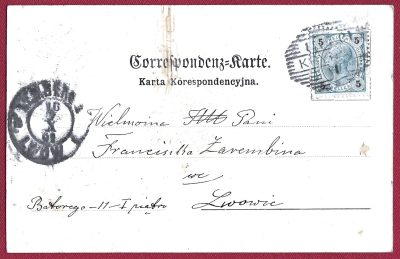 Correspondenz-Karte.
Karta Korespondencyjna.
5 5
5 5
LEMBERG
Wielmożna Pani
Franciszka Zarembina
we
Lwowie
Batorego - 11 - I piątro